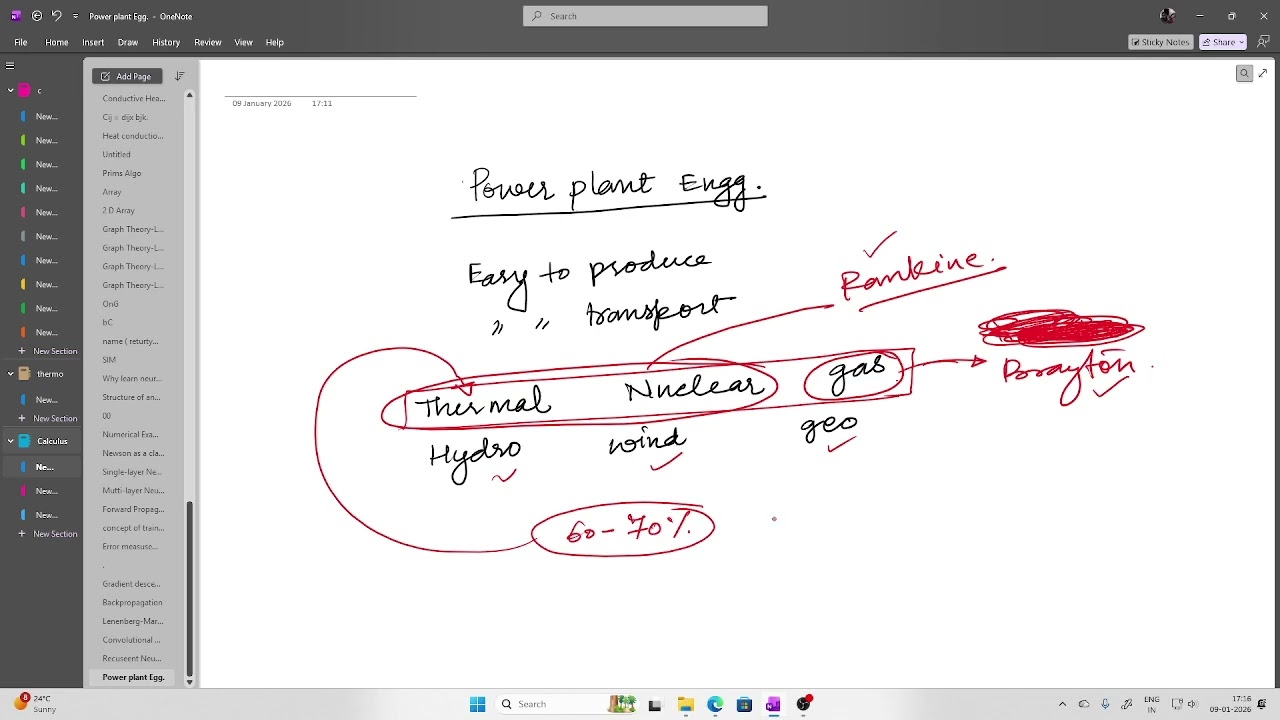 Power plant Engg. - OneNote
Search
File Home Insert Draw History Review View Help
Sticky Notes Share
Add Page
Conductive Hea...
Cij = dijx bjk.
Heat conductio...
Untitled
Prims Algo
Array
2 D Array
Graph Theory-L...
Graph Theory-L...
Graph Theory-L...
Graph Theory-L...
OnG
bC
name ( returty...
SIM
Why learn neur...
Structure of an...
00
Numerical Exa...
Newson as a cla...
Single-layer Ne...
Mutti-layer Neu...
Forward Propag...
concept of train...
Error measuse...
.
Gradient desce...
Backpropagation
Lenenberg-Mar...
Convolutional ...
Recuseent Neu...
Power plant Egg.
c
New...
New...
New...
New...
New...
New...
New...
New...
New...
New...
New Section
thermo
New...
New...
New Section
Calculus
Ne...
New...
New Section
09 January 2026 17:11
Power plant Engg.
Easy to produce
" " transport
Rankine.
Thermal Nuclear gas
Brayton.
Hydro wind geo
60-70%.
8
24°C
Sunny
Search
ENG
IN
17:16
09-01-2026